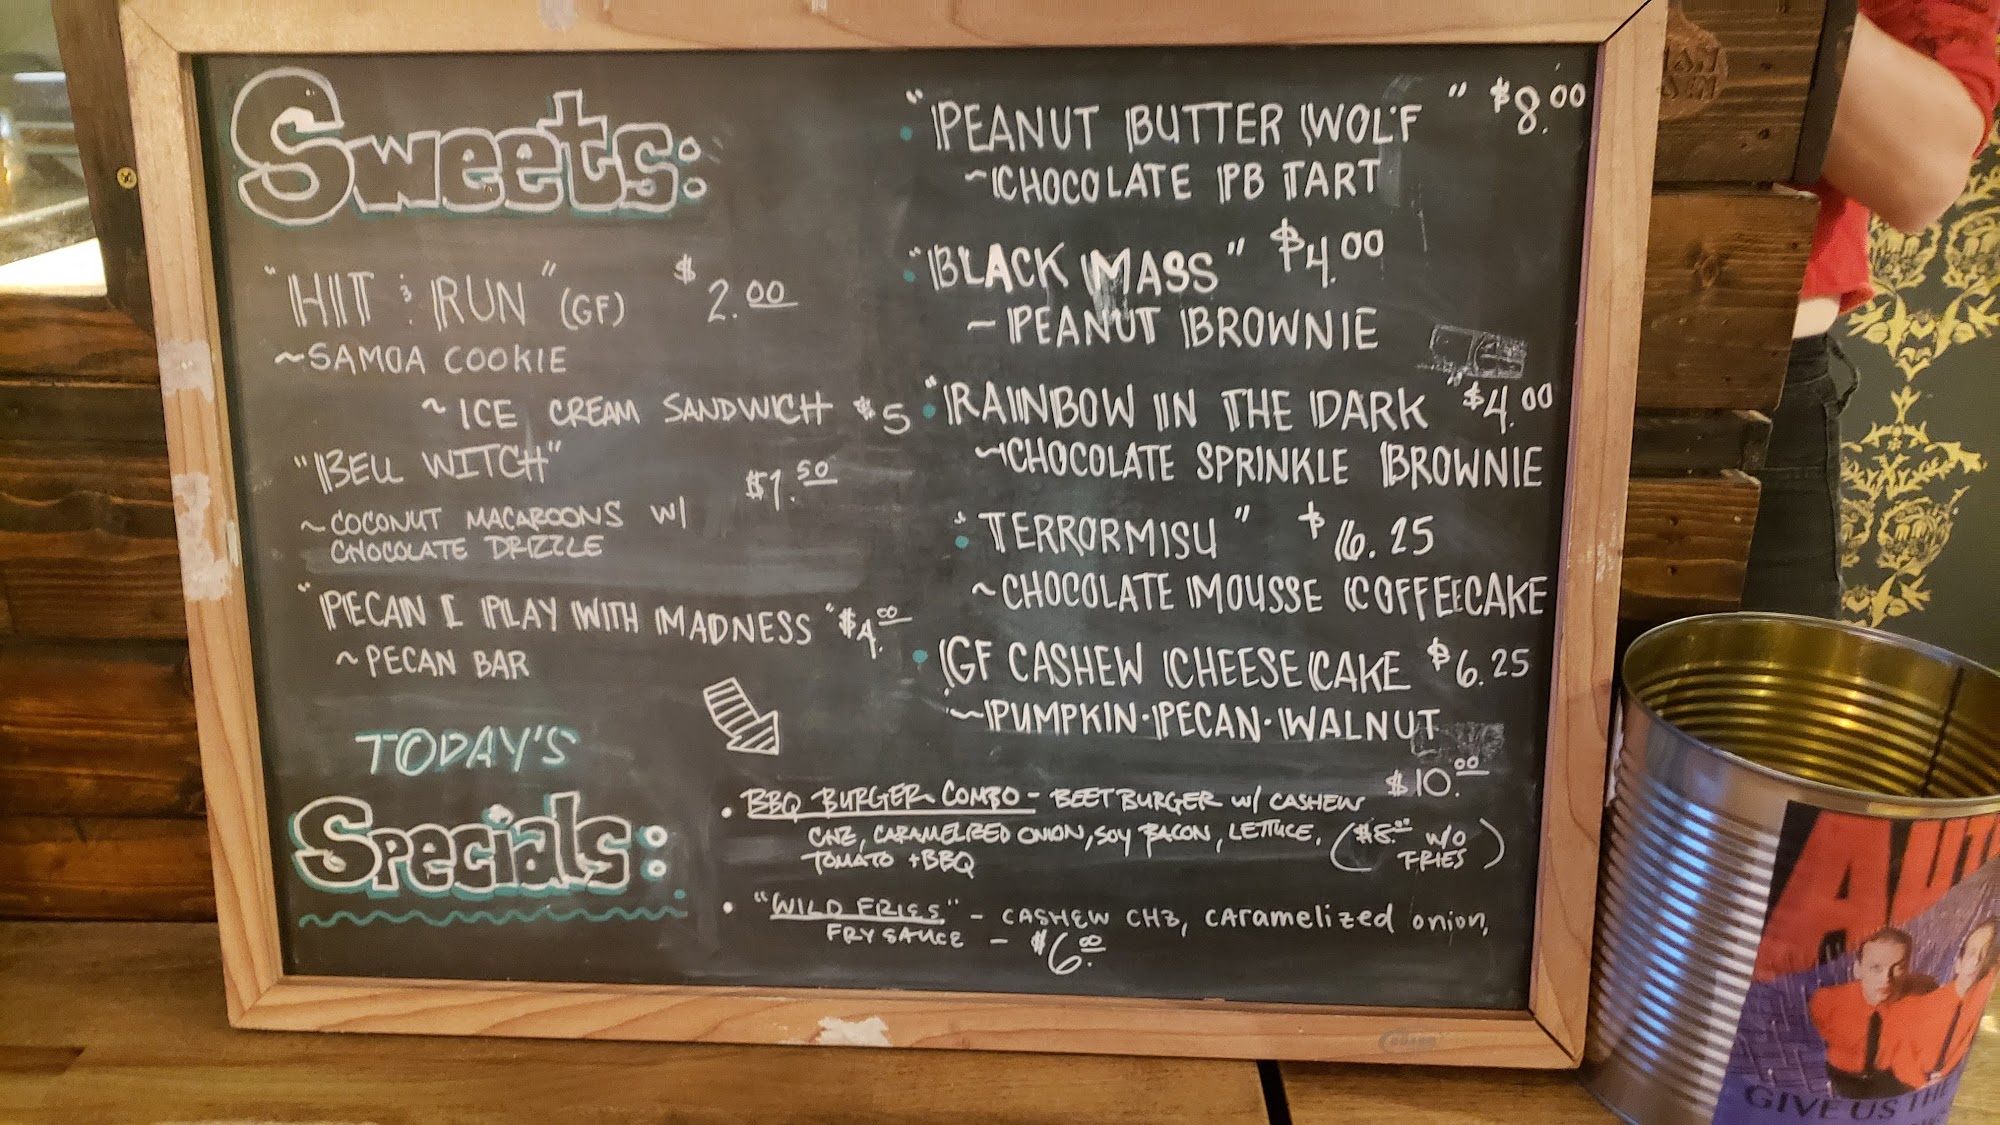 Sweets:
"HIT & RUN" (GF) $2.00
~SAMOA COOKIE
~ ICE CREAM SANDWICH $5
"BELL WITCH" $1.50
~COCONUT MACAROONS W/
CHOCOLATE DRIZZLE
"PECAN I PLAY WITH MADNESS" $4.00
~PECAN BAR
"PEANUT BUTTER WOLF" $8.00
~CHOCOLATE PB TART
"BLACK MASS" $4.00
~PEANUT BROWNIE
"RAINBOW IN THE DARK" $4.00
~CHOCOLATE SPRINKLE BROWNIE
"TERRORMISU" $6.25
~CHOCOLATE MOUSSE COFFEECAKE
GF CASHEW CHEESECAKE $6.25
~PUMPKIN·PECAN·WALNUT
TODAY'S
Specials:
• BBQ BURGER COMBO - BEET BURGER W/ CASHEW $10.00
CHZ, CARAMELIZED ONION, SOY BACON, LETTUCE, ($8.00 W/O
TOMATO + BBQ FRIES)
• "WILD FRIES" - CASHEW CHZ, CARAMELIZED ONION,
FRY SAUCE - $6.00
AUT
GIVE US THE